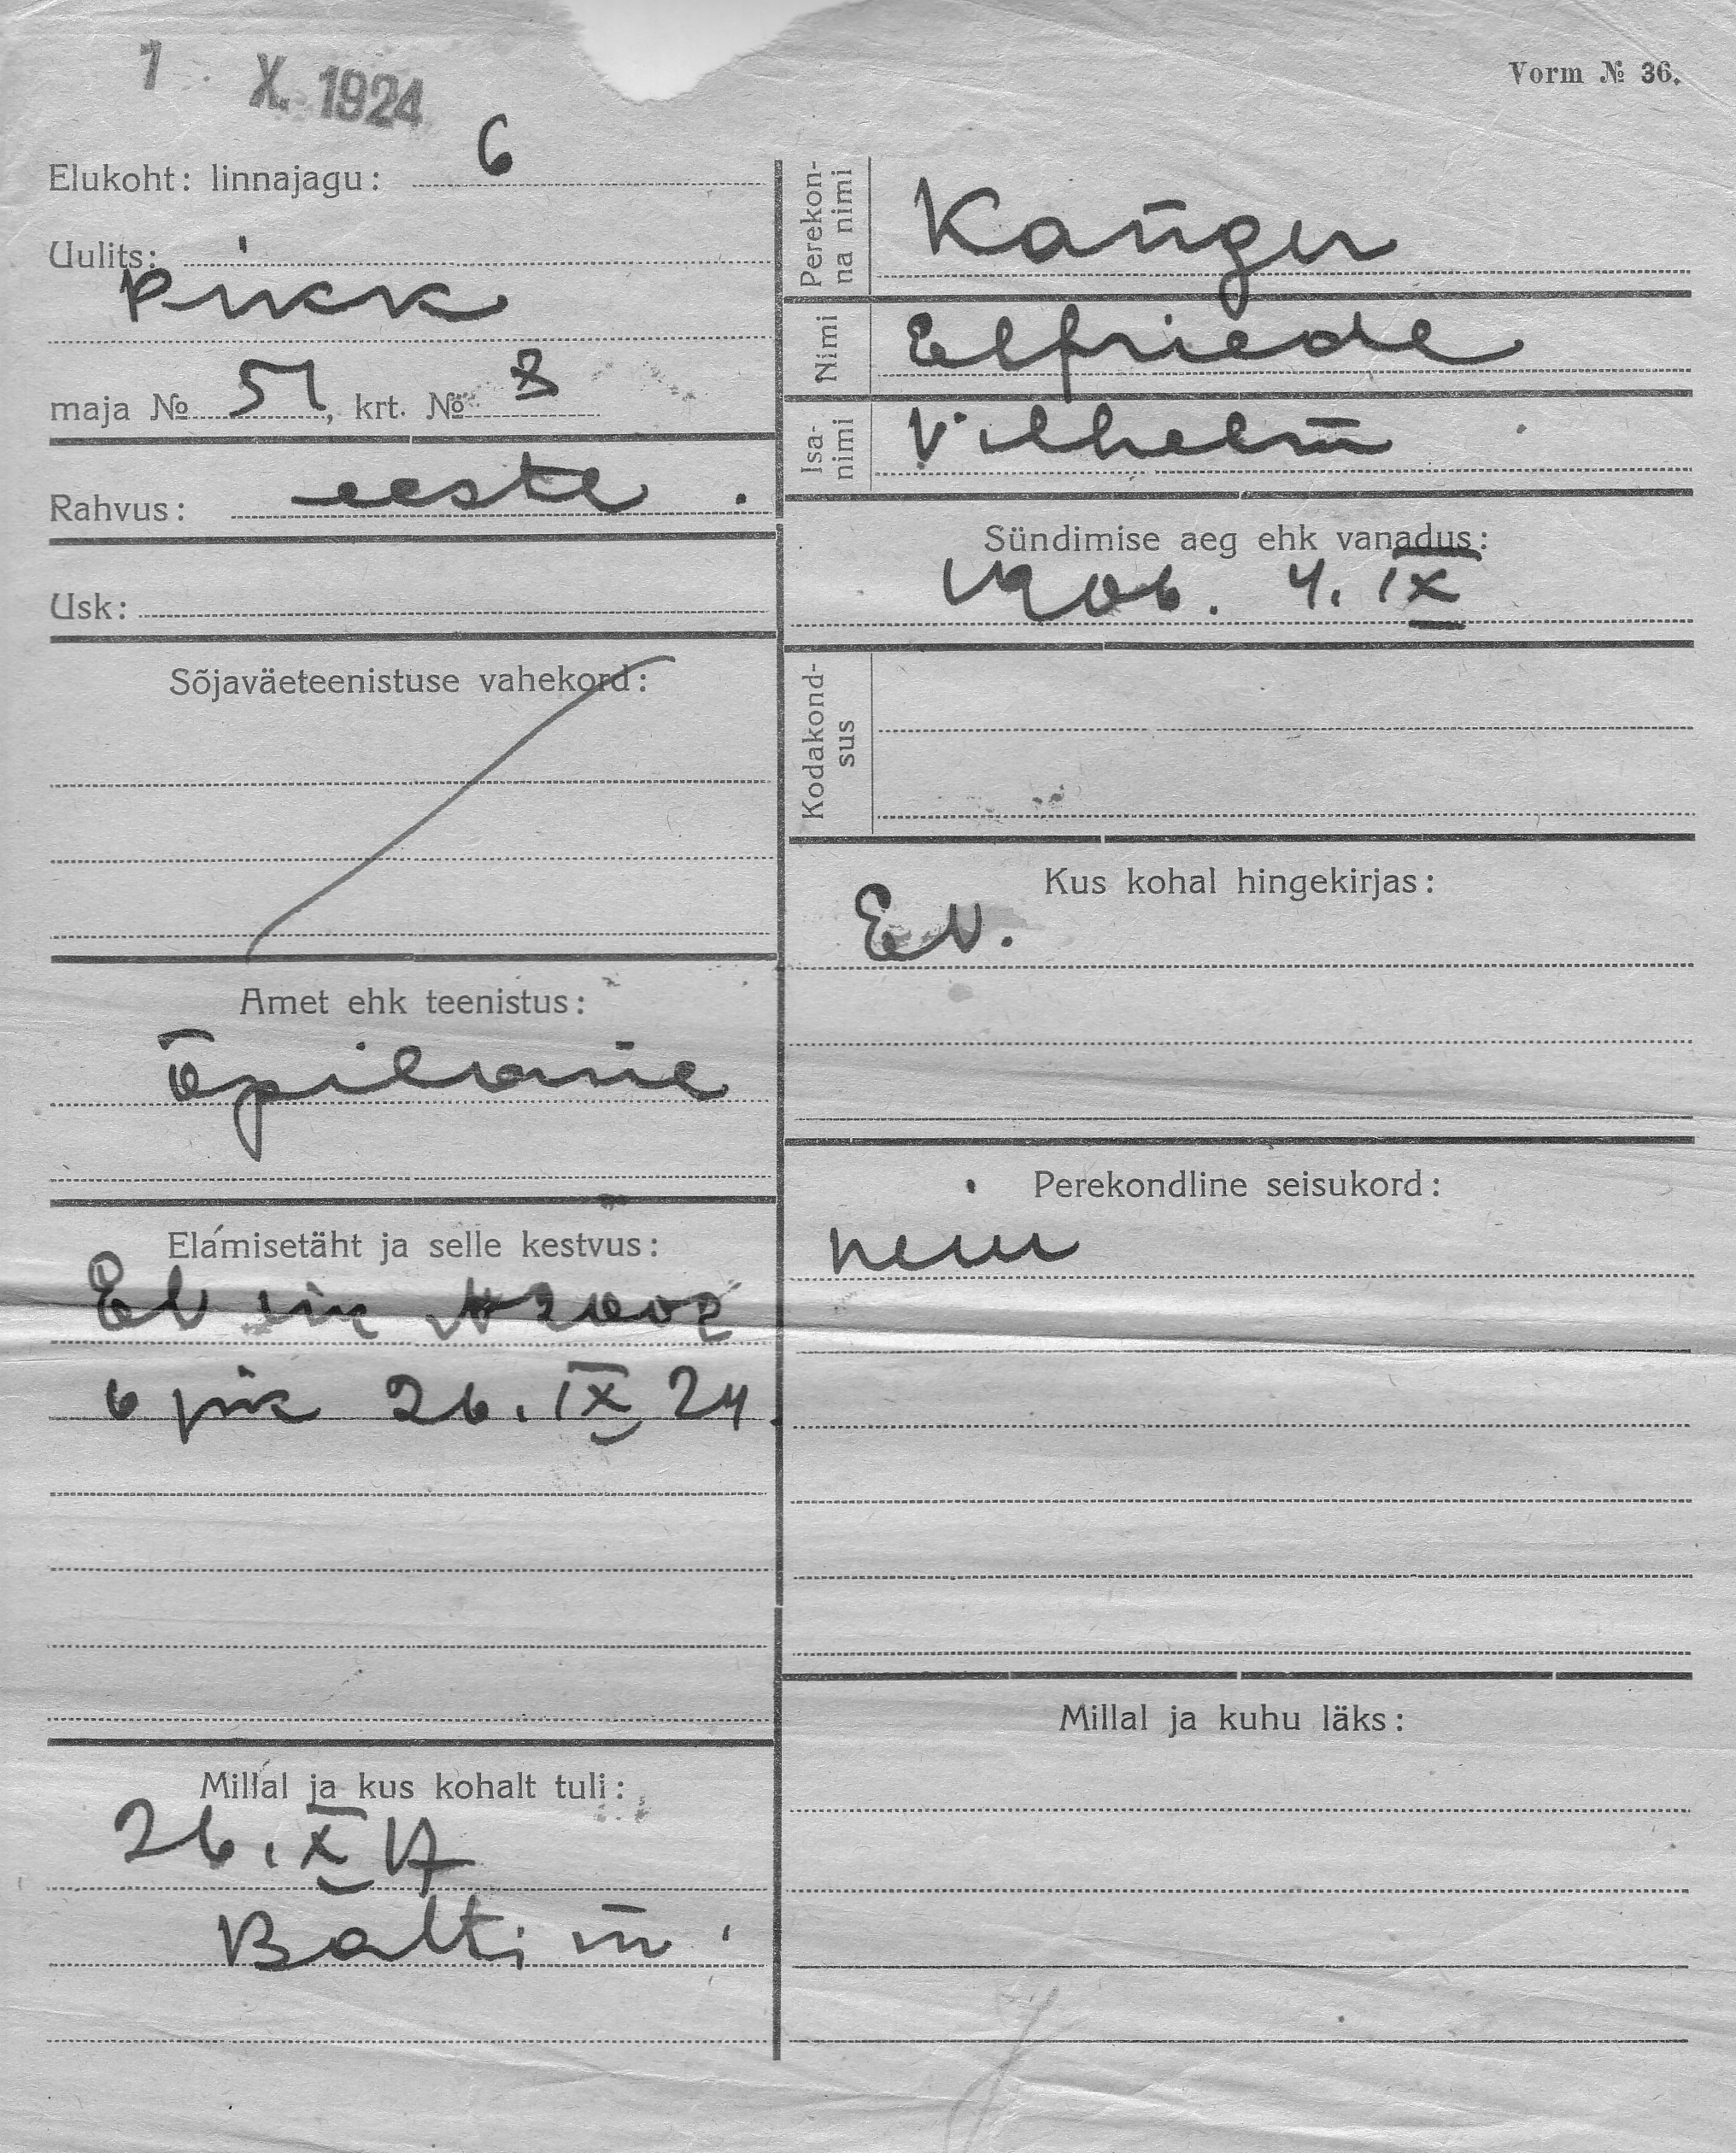 1. X. 1924
Vorm № 36.
Elukoht: linnajagu: 6
Uulits:
Pikk
maja № 51, krt. № 3
Rahvus: eeste.
Usk:
Sõjaväeteenistuse vahekord:
Amet ehk teenistus:
õpilane
Elamisetäht ja selle kestvus:
EV
6 26. IX 24.
Millal ja kus kohalt tuli:
26. IX
Balti m.
Perekonna nimi Kangur
Nimi Elfriede
Isanimi Vilhelm
Sündimise aeg ehk vanadus:
1906. 4. IX
Kodakondsus
Kus kohal hingekirjas:
EV.
Perekondline seisukord:
neiu
Millal ja kuhu läks: